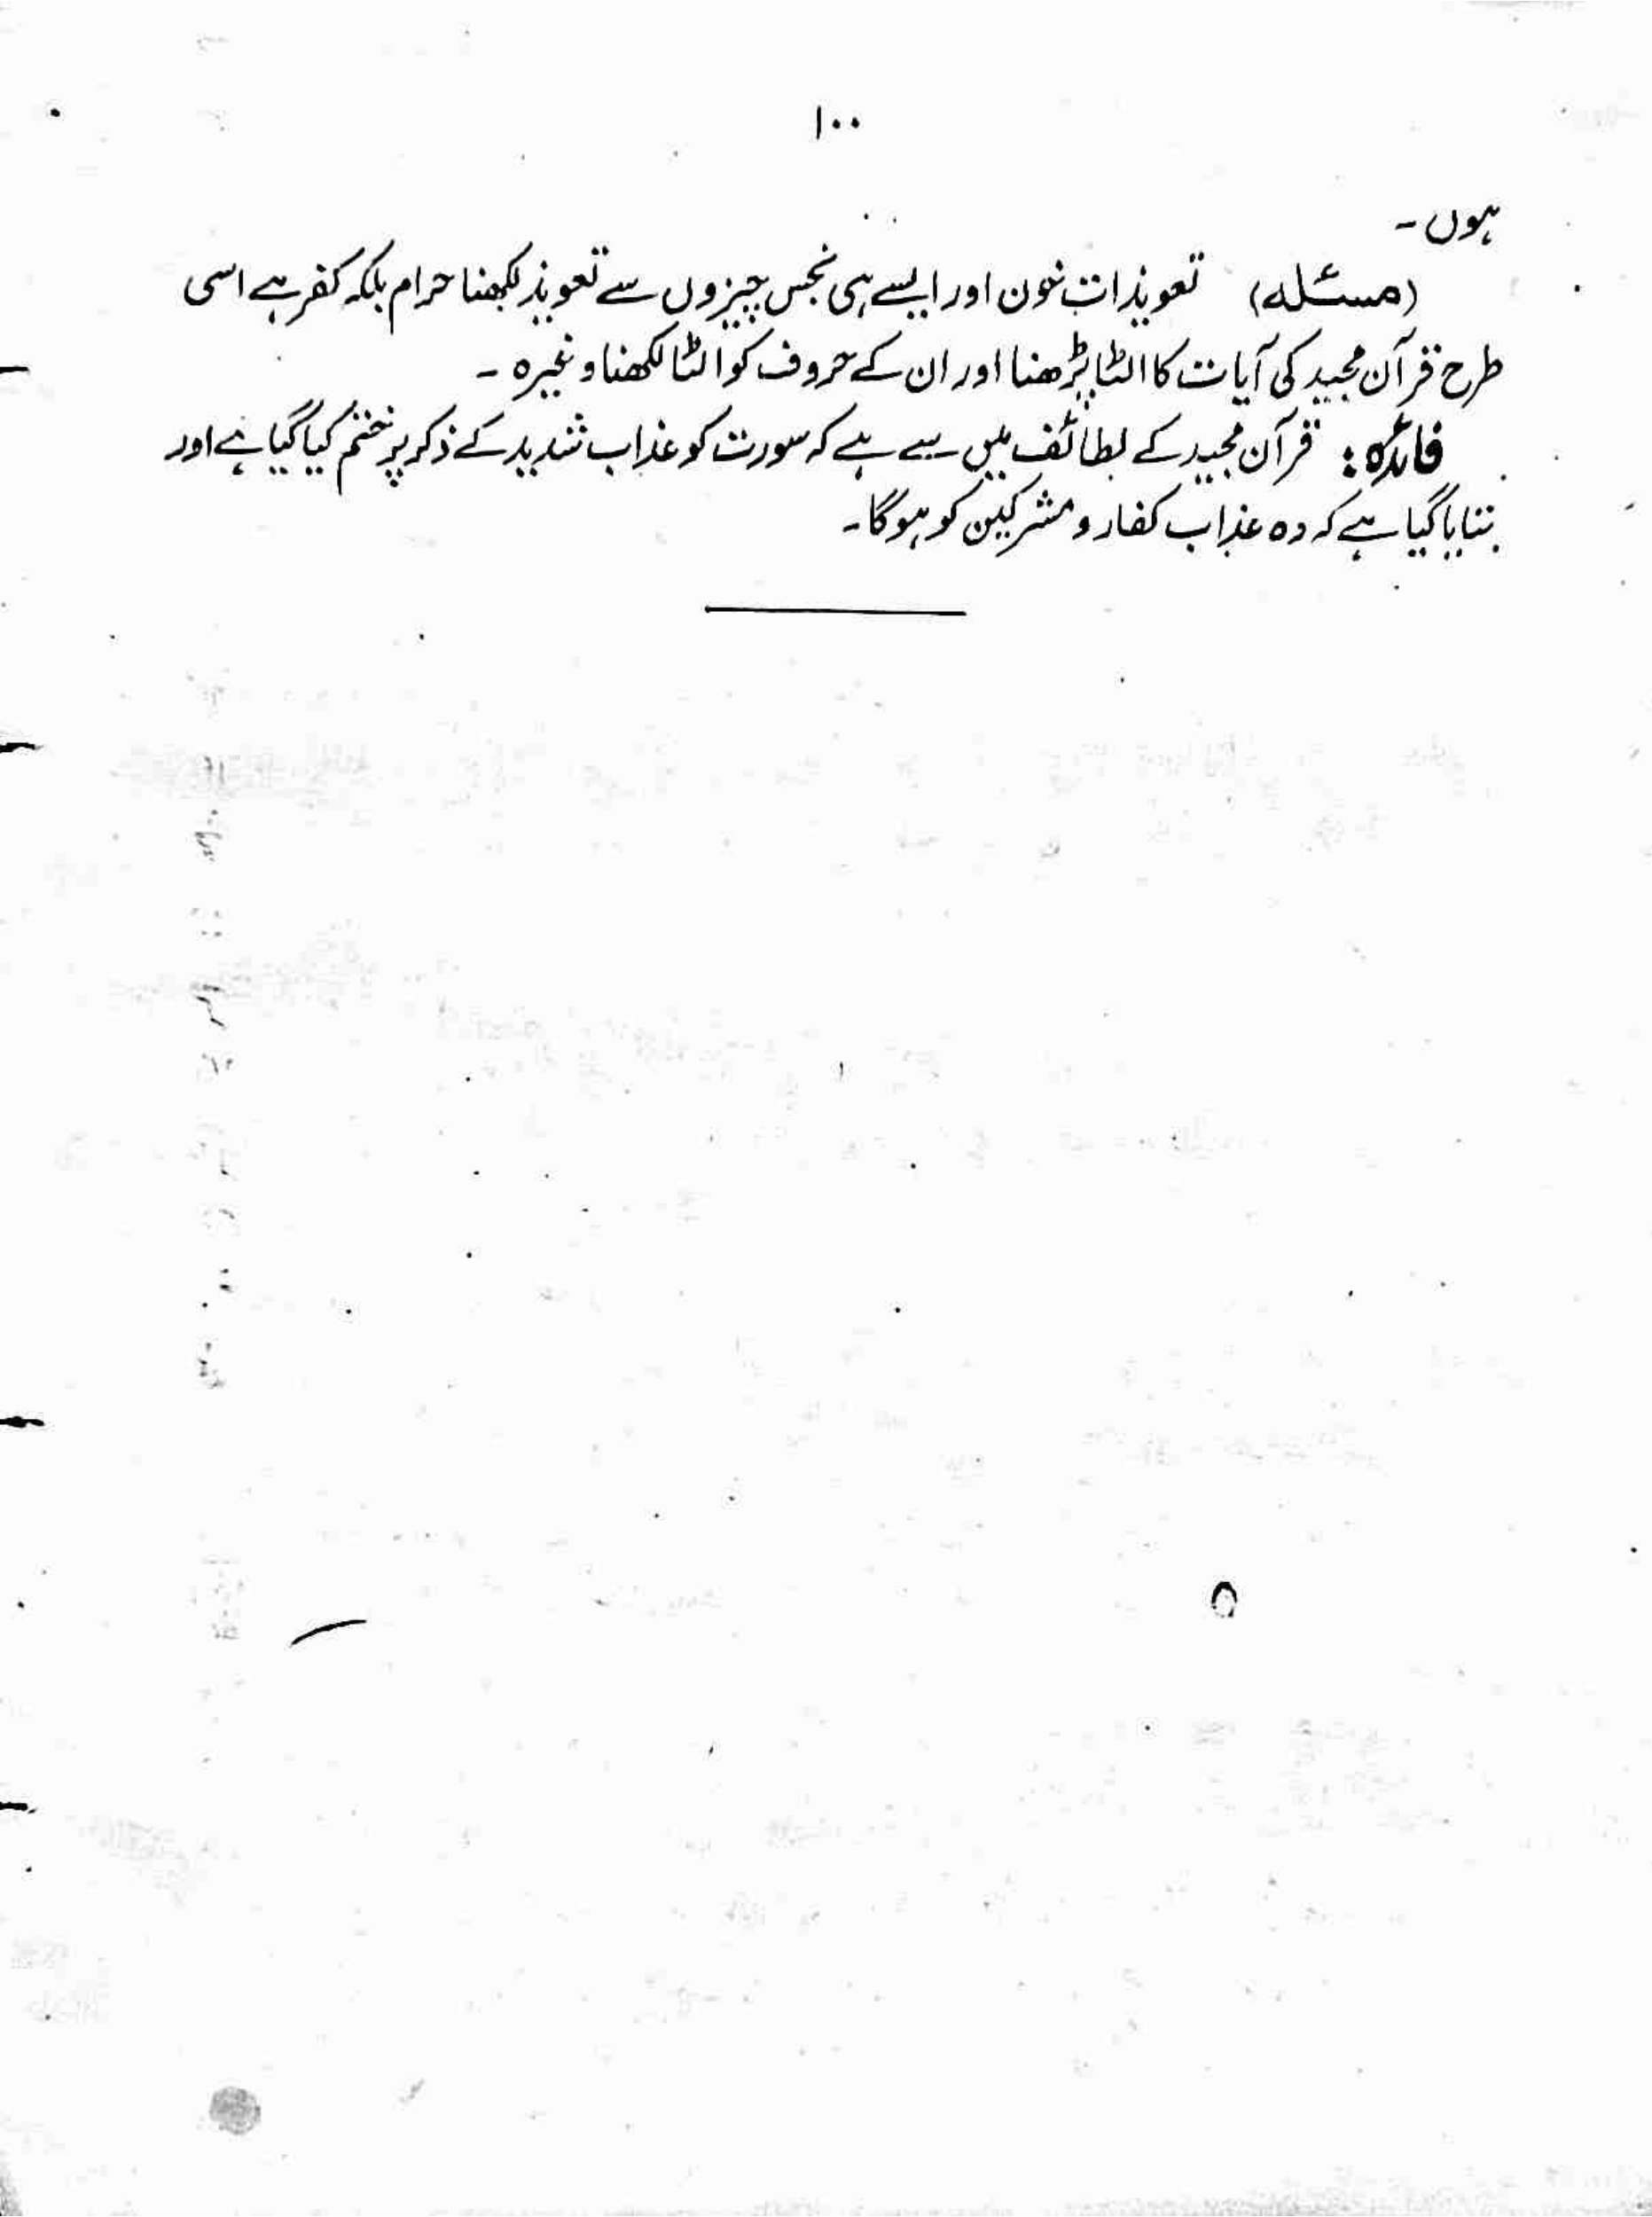 ۱۰۰
ہوں ۔
(مسئلہ) تعویذات خون اور ایسے ہی نجس چیزوں سے تعویذ لکھنا حرام بلکہ کفر ہے اسی
طرح قرآن مجید کی آیات کا الٹا پڑھنا اور ان کے حروف کو الٹا لکھنا وغیرہ ۔
فائدہ: قرآن مجید کے لطائف میں سے ہے کہ سورت کو عذاب شدید کے ذکر پر ختم کیا گیا ہے اور
بتایا گیا ہے کہ وہ عذاب کفار و مشرکین کو ہوگا ۔